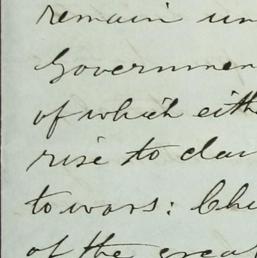 remain un
Governmen
of which eith
rise to
to wars:
of the grea